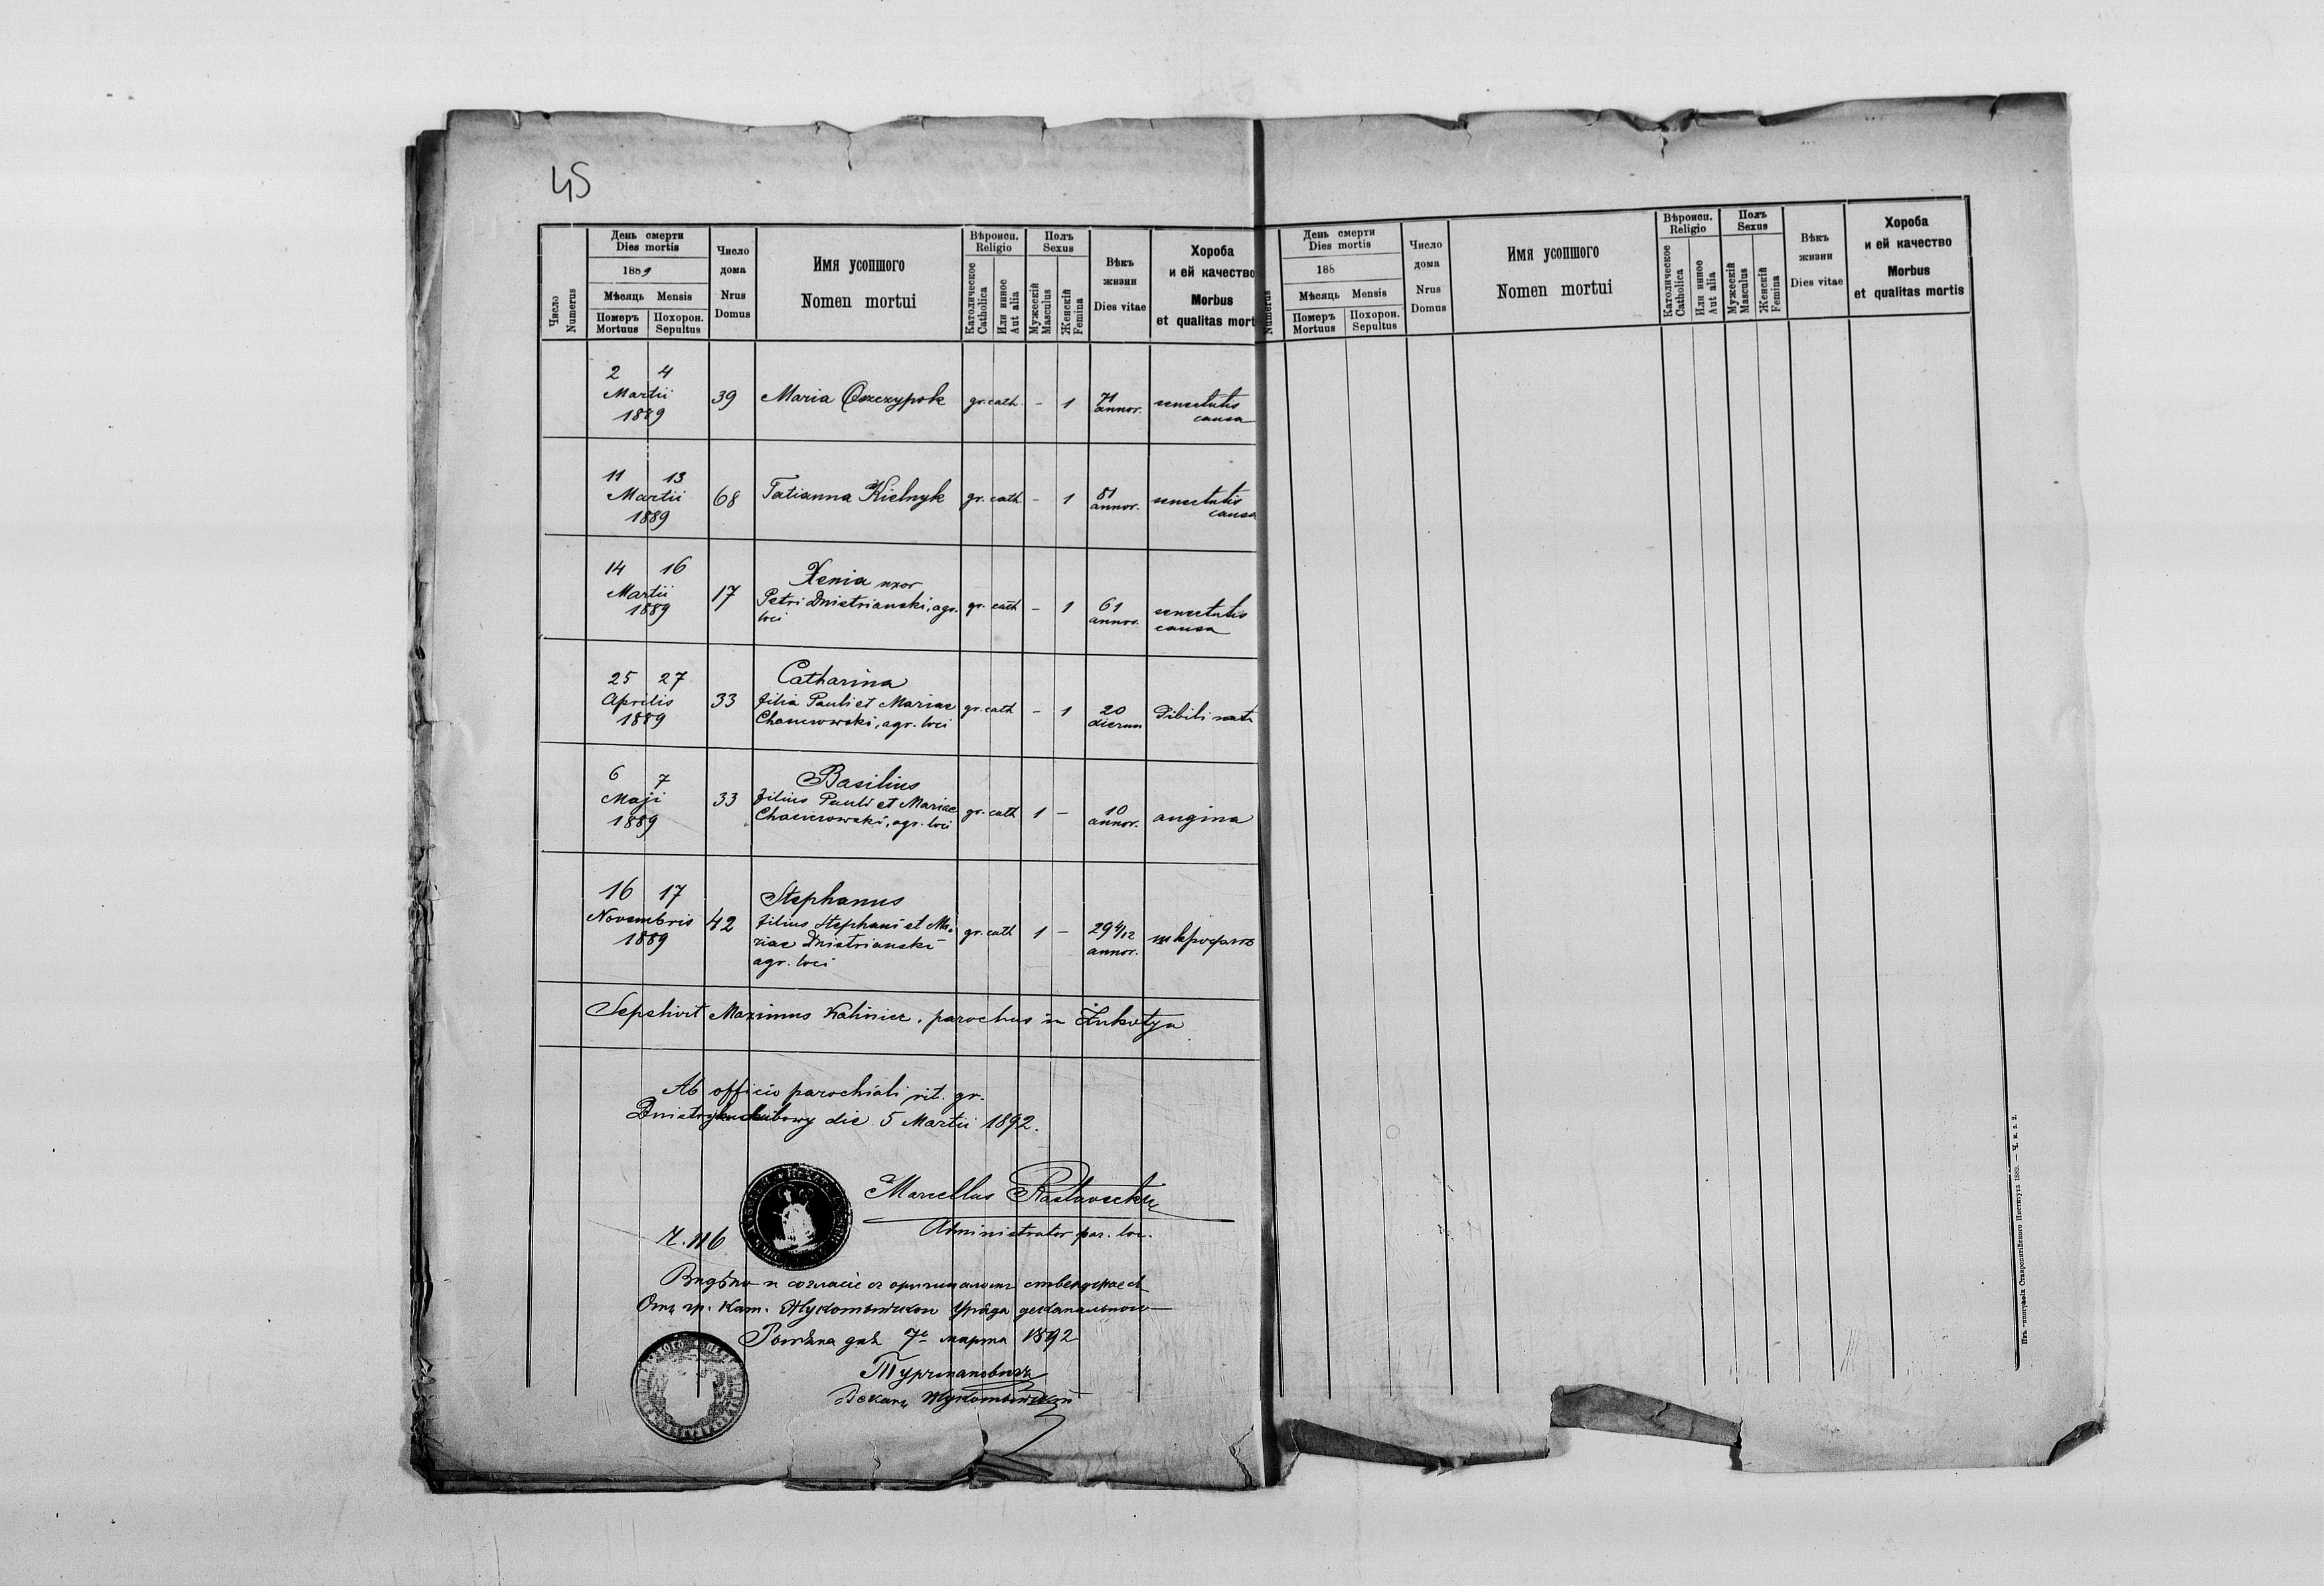 45
Число
Numerus
День смерти
Dies mortis
1889
Мѣсяць Mensis
Померъ
Mortuus
Похорон.
Sepultus
Число
дома
Nrus
Domus
Имя усопшого
Nomen mortui
Вѣроисп.
Religio
Католическое
Catholica
Или инное
Aut alia
Полъ
Sexus
Мужескій
Masculus
Женскій
Femina
Вѣкъ
жизни
Dies vitae
Хороба
и ей качество
Morbus
et qualitas mort
2 4
Martii
1889
39
Maria
gr. cath. - 1
71
annor.
senectutis
causa
11 13
Martii
1889
68
Tatianna Kielnyk
gr. cath - 1
81
annor.
senectutis
causa
14 16
Martii
1889
17
Xenia uxor
Petri Dnistrianski, agr.
loci
gr. cath - 1
61
annor.
senectutis
causa
25 27
Aprilis
1889
33
Catharina
filia Pauli et Mariae
agr. loci
gr. cath - 1
20
dierum
6 7
Maji
1889
33
Basilius
filius Pauli et Mariae
agr. loci
gr. cath 1 -
10
annor.
angina
16 17
Novembris
1889
42
Stephanus
filius Stephani et Ma-
riae Dnistrianski
agr. loci
gr. cath 1 -
29 4/12
annor.
Sepelivit Maximus Kaliniec, parochus in Żukotyn
Ab officio parochiali rit. gr.
die 5 Martii 1892.
Marcellus
Administrator par. loc.
Ч. 116
Видѣно и согласіе съ оригиналомъ
Отъ гр. кат. Жукотинского Уряда деканального
дня 7 марта 1892
Деканъ
Numerus
День смерти
Dies mortis
188
Мѣсяць Mensis
Померъ
Mortuus
Похорон.
Sepultus
Число
дома
Nrus
Domus
Имя усопшого
Nomen mortui
Вѣроисп.
Religio
Католическое
Catholica
Или инное
Aut alia
Полъ
Sexus
Мужескій
Masculus
Женскій
Femina
Вѣкъ
жизни
Dies vitae
Хороба
и ей качество
Morbus
et qualitas mortis
Ставропигійского Института 1889. — Ч. в. з. 2.